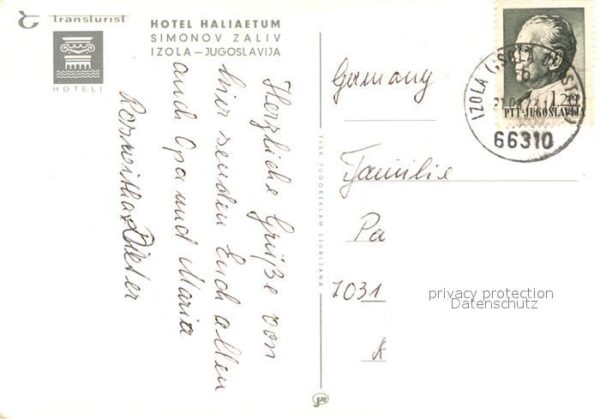 Transturist
HOTELI
HOTEL HALIAETUM
SIMONOV ZALIV
IZOLA – JUGOSLAVIJA
Herzliche Grüße von
hier senden Euch allen
auch Opa und Maria
Roswitha Dieter
TISK JUGOREKLAM LJUBLJANA
1.20
PTT-JUGOSLAVIJA
IZOLA
66310
Germany
Familie
Pa
7031
K
privacy protection
Datenschutz